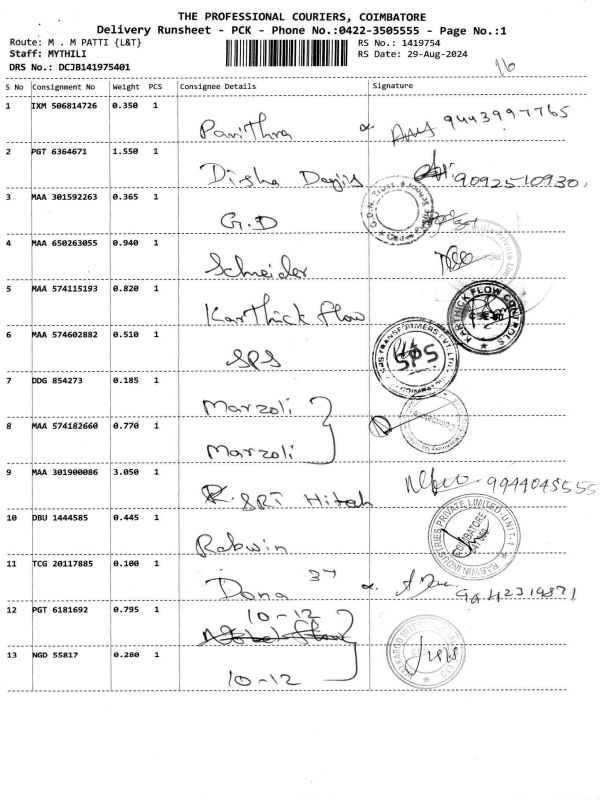 THE PROFESSIONAL COURIERS, COIMBATORE
Delivery Runsheet - PCK - Phone No.:0422-3505555 - Page No.:1
Route: M . M PATTI {L&T} RS No.: 1419754
Staff: MYTHILI RS Date: 29-Aug-2024
DRS No.: DCJB141975401
16
S No Consignment No Weight PCS Consignee Details Signature
1 IXM 506814726 0.350 1
Pavithra 9443997765
2 PGT 6364671 1.550 1
Disha 9092510930.
3 MAA 301592263 0.365 1
G.D
4 MAA 650263055 0.940 1
Schneider
5 MAA 574115193 0.820 1
Karthick flow KARTHICK FLOW CONTROLS
6 MAA 574602882 0.510 1
SPS SPS TRANSFORMERS PVT LTD SPS
7 DDG 854273 0.185 1
Marzoli
8 MAA 574182660 0.770 1
Marzoli Coimbatore
9 MAA 301900086 3.050 1
SRI Hitech
10 DBU 1444585 0.445 1
Rabwin RABWIN INDUSTRIES PRIVATE LIMITED-UNIT-1 COIMBATORE
11 TCG 20117885 0.100 1
Dana 37
12 PGT 6181692 0.795 1
10-12
13 NGD 55817 0.280 1
10-12